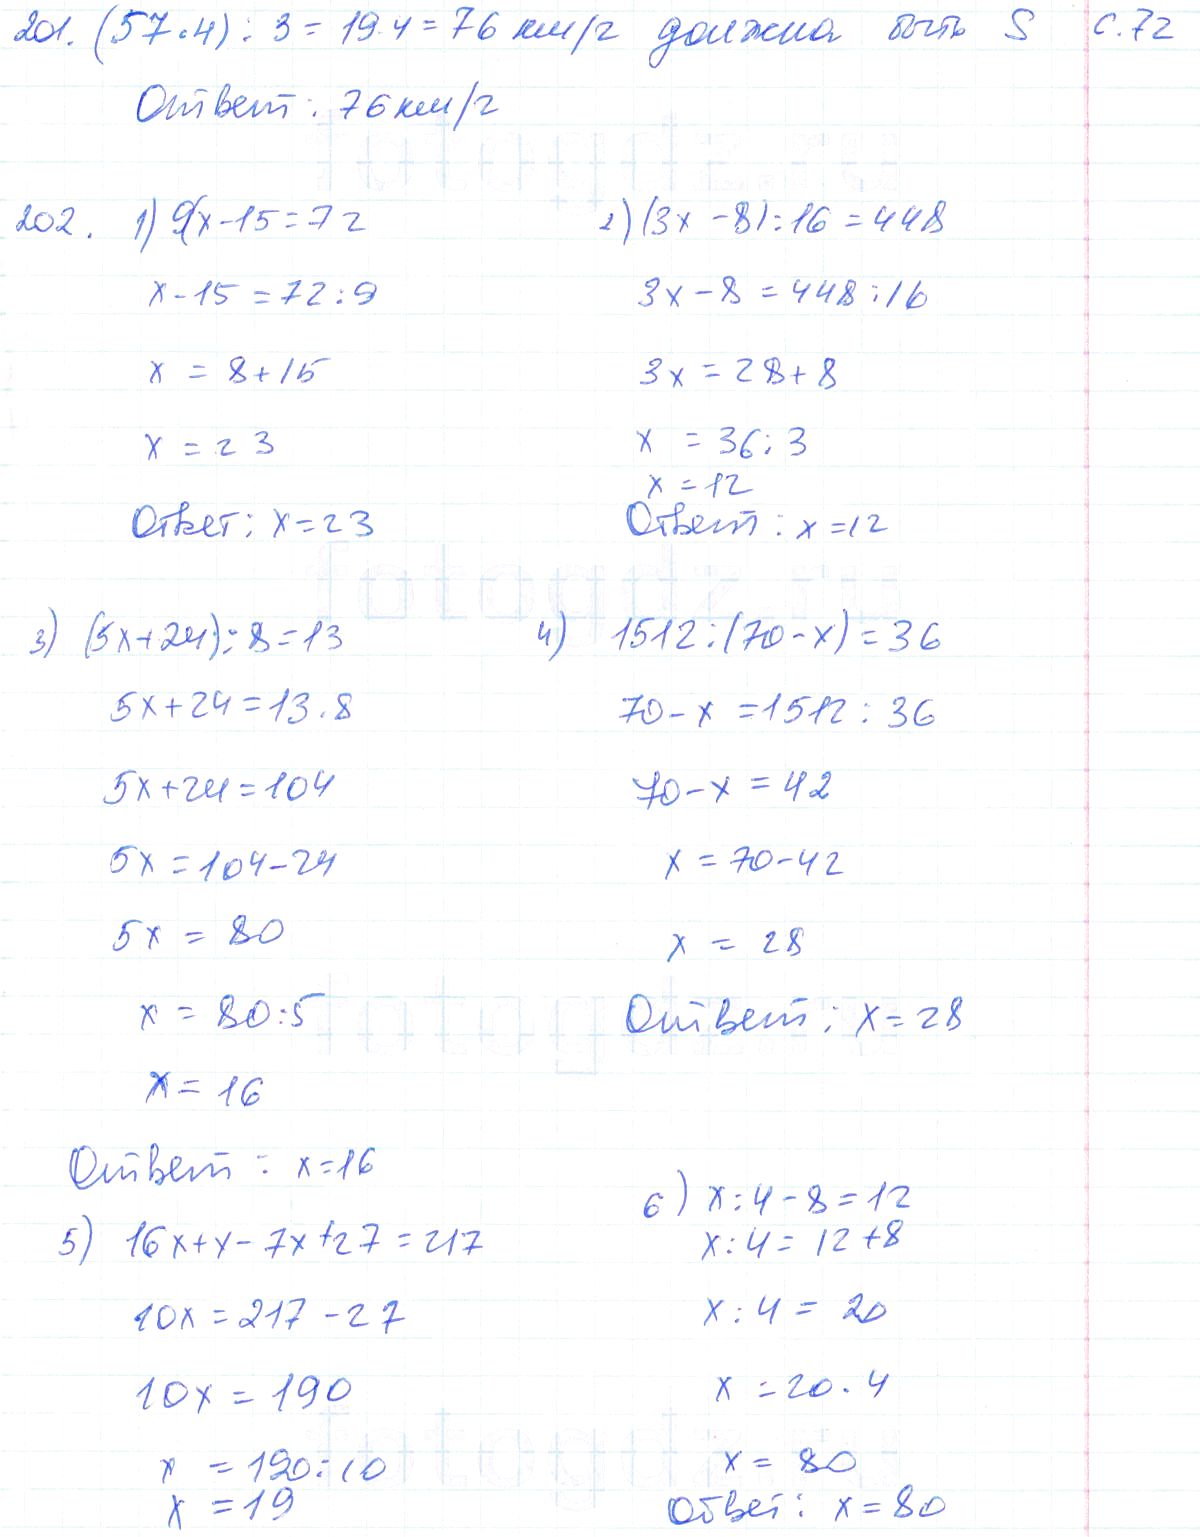 201. (57·4) : 3 = 19·4 = 76 км/г должна быть S с.72
Ответ: 76 км/г
202. 1) 9(x-15=72
x-15=72:9
x = 8+15
x = 23
Ответ: x=23
2) (3x-8):16=448
3x-8=448:16
3x=28+8
x = 36:3
x=12
Ответ: x=12
3) (5x+24):8=13
5x+24=13·8
5x+24=104
5x=104-24
5x = 80
x = 80:5
x = 16
Ответ: x=16
4) 1512:(70-x)=36
70-x=1512:36
70-x=42
x=70-42
x = 28
Ответ: x=28
5) 16x+x-7x+27=217
10x=217-27
10x=190
x = 190:10
x = 19
6) x:4-8=12
x:4=12+8
x:4= 20
x = 20·4
x = 80
Ответ: x=80
fotogdz.ru
fotogdz.ru
fotogdz.ru
fotogdz.ru